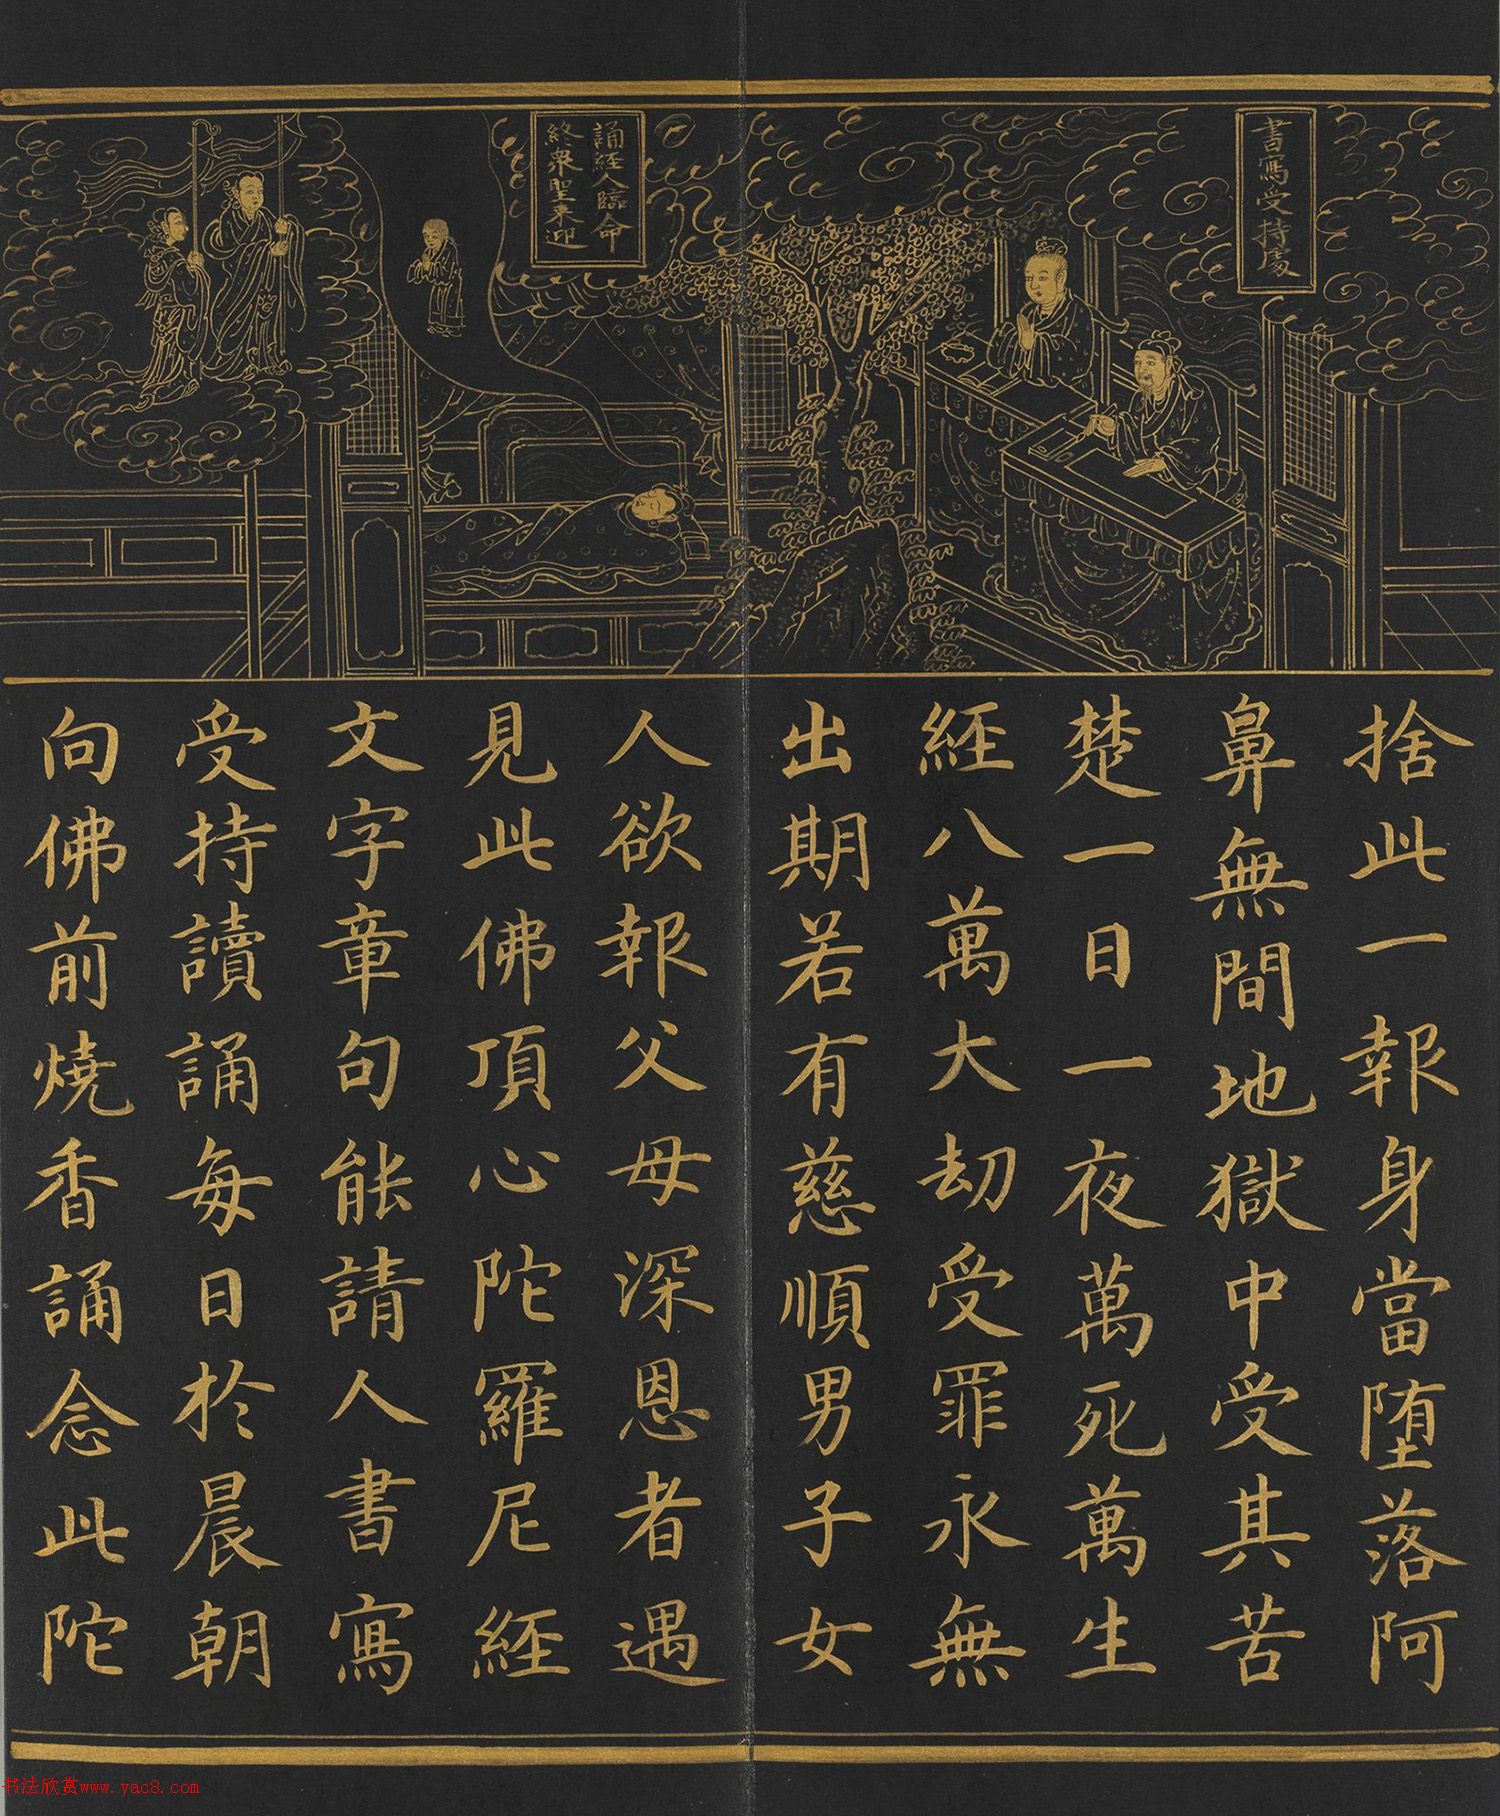 書寫受持處
誦經人臨命
終衆聖来迎
捨此一報身當墮落阿
鼻無間地獄中受其苦
楚一日一夜萬死萬生
經八萬大劫受罪永無
出期若有慈順男子女
人欲報父母深恩者遇
見此佛頂心陀羅尼經
文字章句能請人書寫
受持讀誦每日於晨朝
向佛前燒香誦念此陀
书法欣赏www.yac8.com